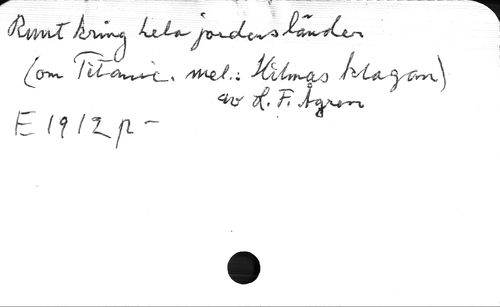 Runt kring hela jordens länder
(om Titanic. mel.: Hilmas klagan)
av L. F. Ågren
E 1912 p -